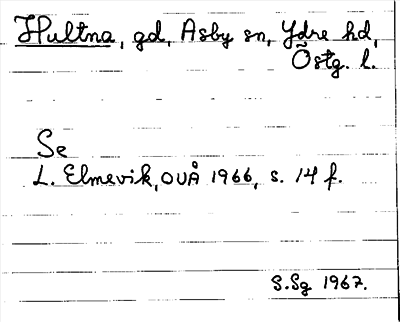 Hultna, gd, Asby sn, Ydre hd,
Östg. l.
Se
L. Elmevik, OUÅ 1966, s. 14 f.
S.Sg 1967.